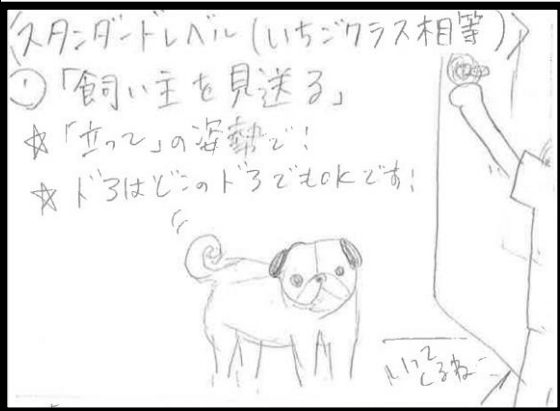 〈スタンダードレベル(いちごクラス相等)〉
①「飼い主を見送る」
☆「立って」の姿勢で!
☆ドアはどこのドアでもOKです!
いって
くるねー